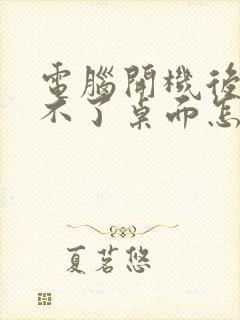 電腦開機後
不了桌面怎
夏茗悠